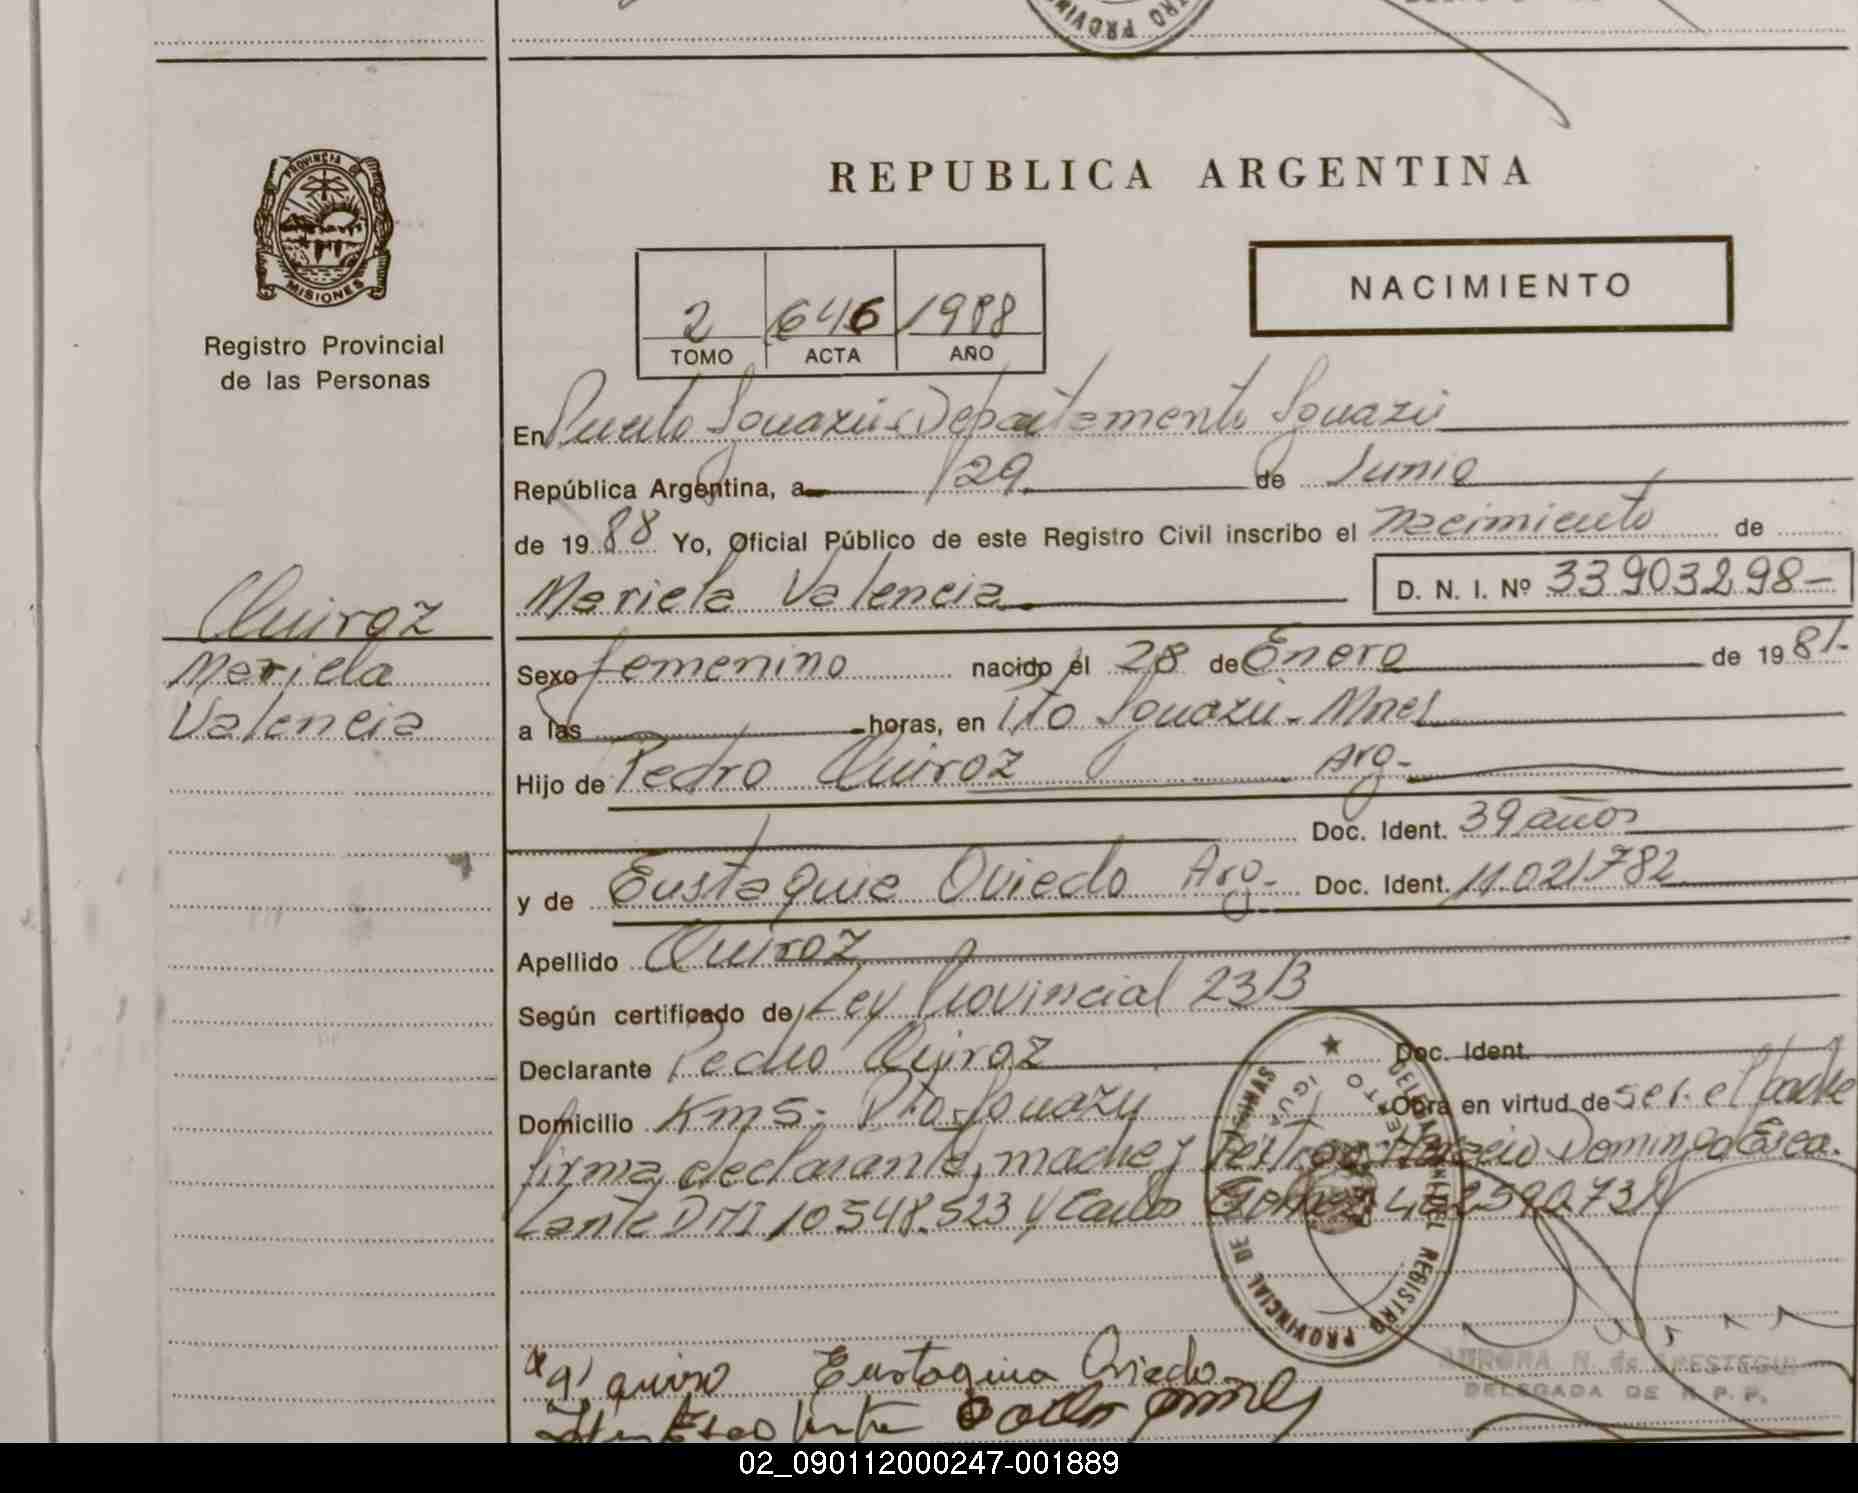 REPUBLICA ARGENTINA
PROVINCIA
MISIONES
Registro Provincial
de las Personas
NACIMIENTO
2 646 1988
TOMO ACTA AÑO
En Puerto Iguazú Departamento Iguazú
República Argentina, a 29 de Junio
de 1988 Yo, Oficial Público de este Registro Civil inscribo el Nacimiento de
Mariela Valencia D. N. I. Nº 33903298-
Quiroz
Mariela
Valencia
Sexo femenino nacido el 28 de Enero de 1981-
a las horas, en Pto Iguazú - Mnes
Hijo de Pedro Quiroz Arg-
Doc. Ident. 39 años
y de Eustaquia Oviedo Arg- Doc. Ident. 11.021782
Apellido Quiroz
Según certificado de Ley Provincial 2313
Declarante Pedro Quiroz Doc. Ident.
Domicilio Km 5 - Pto Iguazú Obra en virtud de ser el padre
firma declarante, madre y testigos Horacio Domingo Esca-
lante DNI 10548.523 y Carlos Gomez
DELEGACION DEL REGISTRO PROVINCIAL DE LAS PERSONAS
PUERTO IGUAZU
Eustaquia Oviedo
AURORA N. de APESTEGUI
DELEGADA DE R. P. P.
02_090112000247-001889